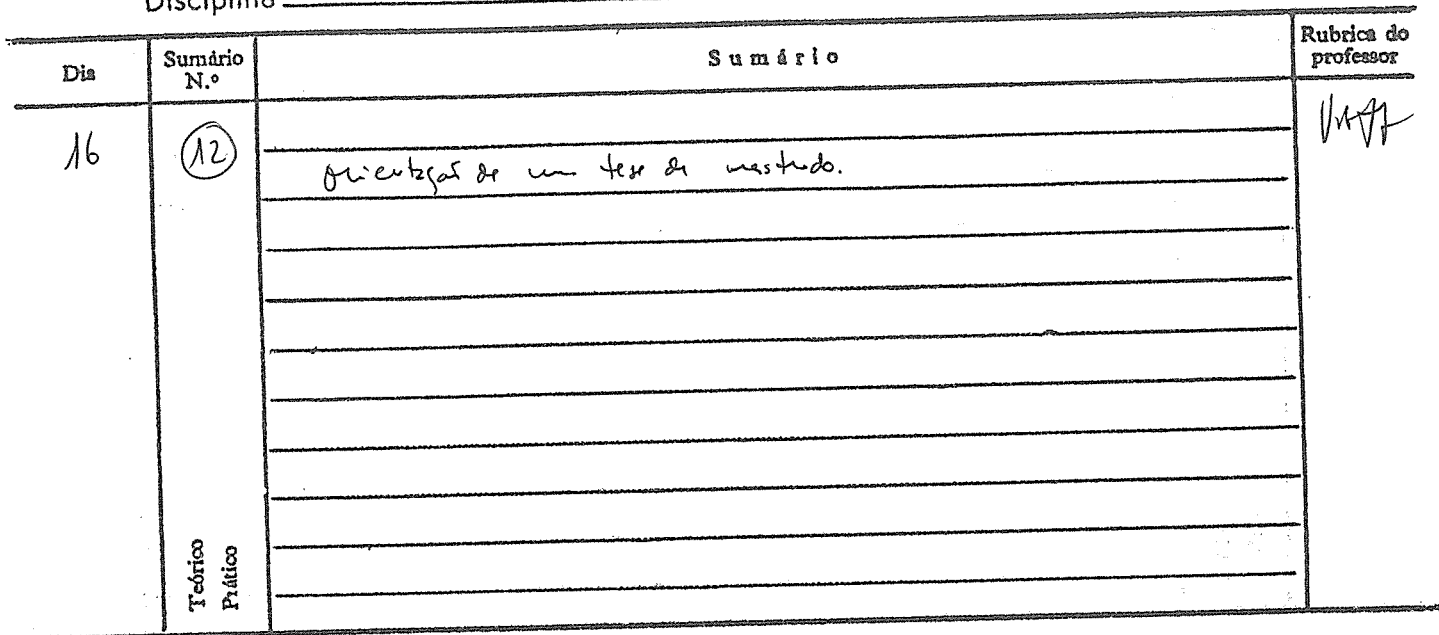 Disciplina
Dia
Sumário N.º
Sumário
Rubrica do professor
16
12
Orientação de um tese de mestrado.
Teórico
Prático